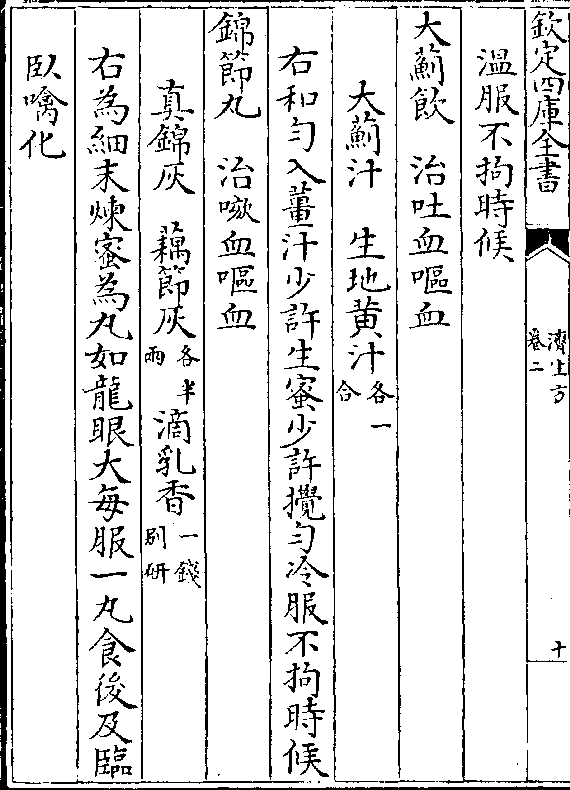 欽定四庫全書
濟生方
卷二
十
溫服不拘時候
大薊飲　治吐血嘔血
大薊汁　生地黄汁各一合
右和勻入薑汁少許生蜜少許攪勻冷服不拘時候
錦節丸　治嗽血嘔血
真錦灰　藕節灰各半兩　滴乳香一錢別研
右為細末煉蜜為丸如龍眼大每服一丸食後及臨
臥噙化